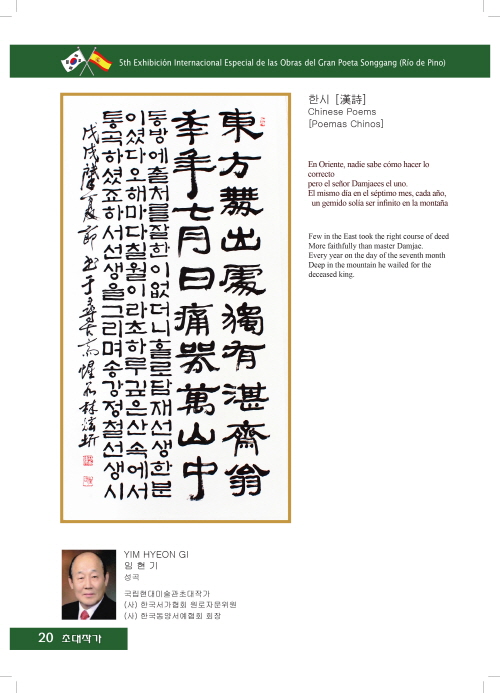 5th Exhibición Internacional Especial de las Obras del Gran Poeta Songgang (Río de Pino)
한시 [漢詩]
Chinese Poems
[Poemas Chinos]
En Oriente, nadie sabe cómo hacer lo
correcto
pero el señor Damjaees el uno.
El mismo día en el séptimo mes, cada año,
un gemido solía ser infinito en la montaña
Few in the East took the right course of deed
More faithfully than master Damjae.
Every year on the day of the seventh month
Deep in the mountain he wailed for the
deceased king.
東方無出處獨有湛齋翁
年年七月日痛哭萬山中
동방에출처를잘한이없더니홀로담재선생한분
이셨다오해마다칠월이라초하루깊은산속에서
통곡하셨죠하서선생을그리며송강정철선생시
YIM HYEON GI
임 현 기
성곡
국립현대미술관초대작가
(사) 한국서가협회 원로자문위원
(사) 한국동양서예협회 회장
20 초대작가